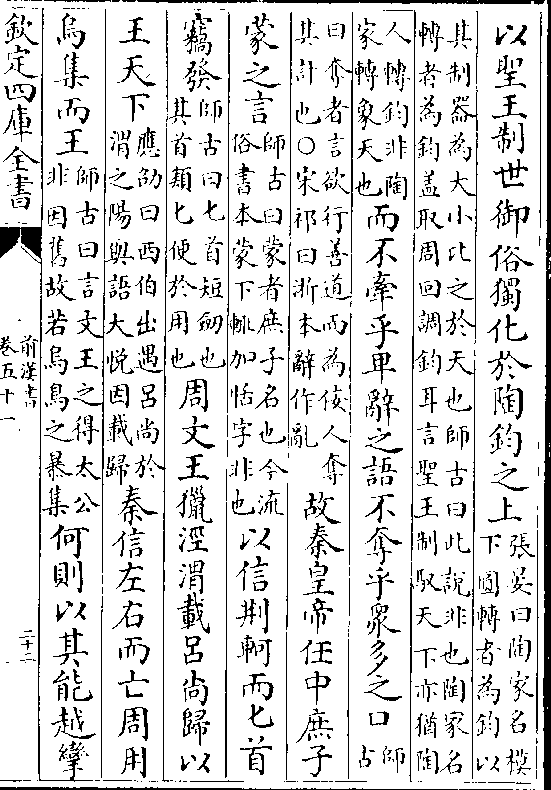 以聖王制世御俗獨化於陶鈞之上張晏曰陶家名模下圓轉者為鈞以
其制器為大小比之於天也師古曰此說非也陶家名
轉者為鈞蓋取周回調鈞耳言聖王制馭天下亦猶陶
人轉鈞非陶家轉象天也而不牽乎卑辭之語不奪乎衆多之口師古
曰奪者言欲行善道而為佞人奪其計也○宋祁曰浙本辭作亂故秦皇帝任中庶子
蒙之言師古曰蒙者庶子名也今流俗書本蒙下輒加恬字非也以信荆軻而匕首
竊發師古曰匕首短劒也其首類匕便於用也周文王獵涇渭載吕尚歸以
王天下應劭曰西伯出遇吕尚於渭之陽與語大悦因載歸秦信左右而亡周用
烏集而王師古曰言文王之得太公非因舊故若烏鳥之暴集何則以其能越攣
欽定四庫全書
前漢書
卷五十一
二十二